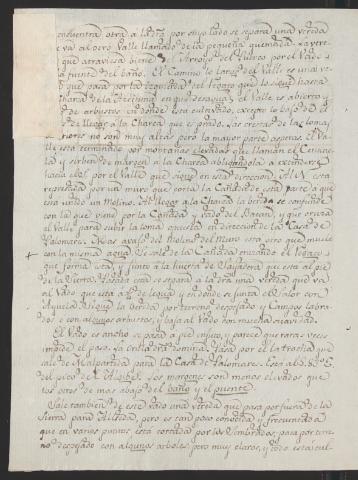 encuentra otra a la dra por cuyo lado se separa una vereda
va al otro Valle llamado de la pequeña quemada. La vere
que atraviesa viene el Arroyo del
a fuente del baño. El Camino lo largo del Valle es una ve
que pasa por la izquierda del
de la en que desagua y el Valle es abierto y
de arbustos en donde esta cultivado, excepto
de llegar a la Charca que es prado. Las crestas de las loma
riores no son muy altas pero la mayor parte asperas. El Va
lle esta terminado por montañas elevadas que llaman el
lad y sirben de margen a la Charca obligandola a extenderse
hacia el S. por el Valle que sigue en esta direccion. Alli esta
represada por un muro que corta la Cañada de esta parte a que
esta unido un Molino. Al llegar a la Charca la vereda se confunde
con la que viene por la Cañada y vado del Batan, y que cruza
el Valle para subir la loma opuesta en direccion de la Casa de
Palomares. Mas avajo del Molino del Muro esta otro que muele
con la misma agua. Se sale de la Cañada cruzando el
que forma esta, y junto a la huerta de que esta al pie
de la Sierra. Pasada esta se separa a la dra una vereda que va
al Vado que esta a ¼ de legua y en donde se junta el
Aquelado. Sigue la vereda por terreno despejado y Campos labra
dos con algunos arbustos, y baja al Vado con mucha suavidad.
El Vado es ancho se pasa a pie enjuto, y parece que raras veces
impide el paso. La orilla dra domina. Pasa por el la trocha que
sale de Malpartida para la Casa de Palomares. Esta al S. S. E.
del pico de Las margenes son menos elevadas que
los otros de mas abajo del baño y el puente.
Sale tambien de este Vado una vereda que pasa por fuera de la
Sierra para Aliseda, pero es tan poco conocida, y frecuentada
que en varios puntos esta cortada por los Sembrados, pasa por terre
no despejado con algunos arboles, pero muy claros, y todo esta cul